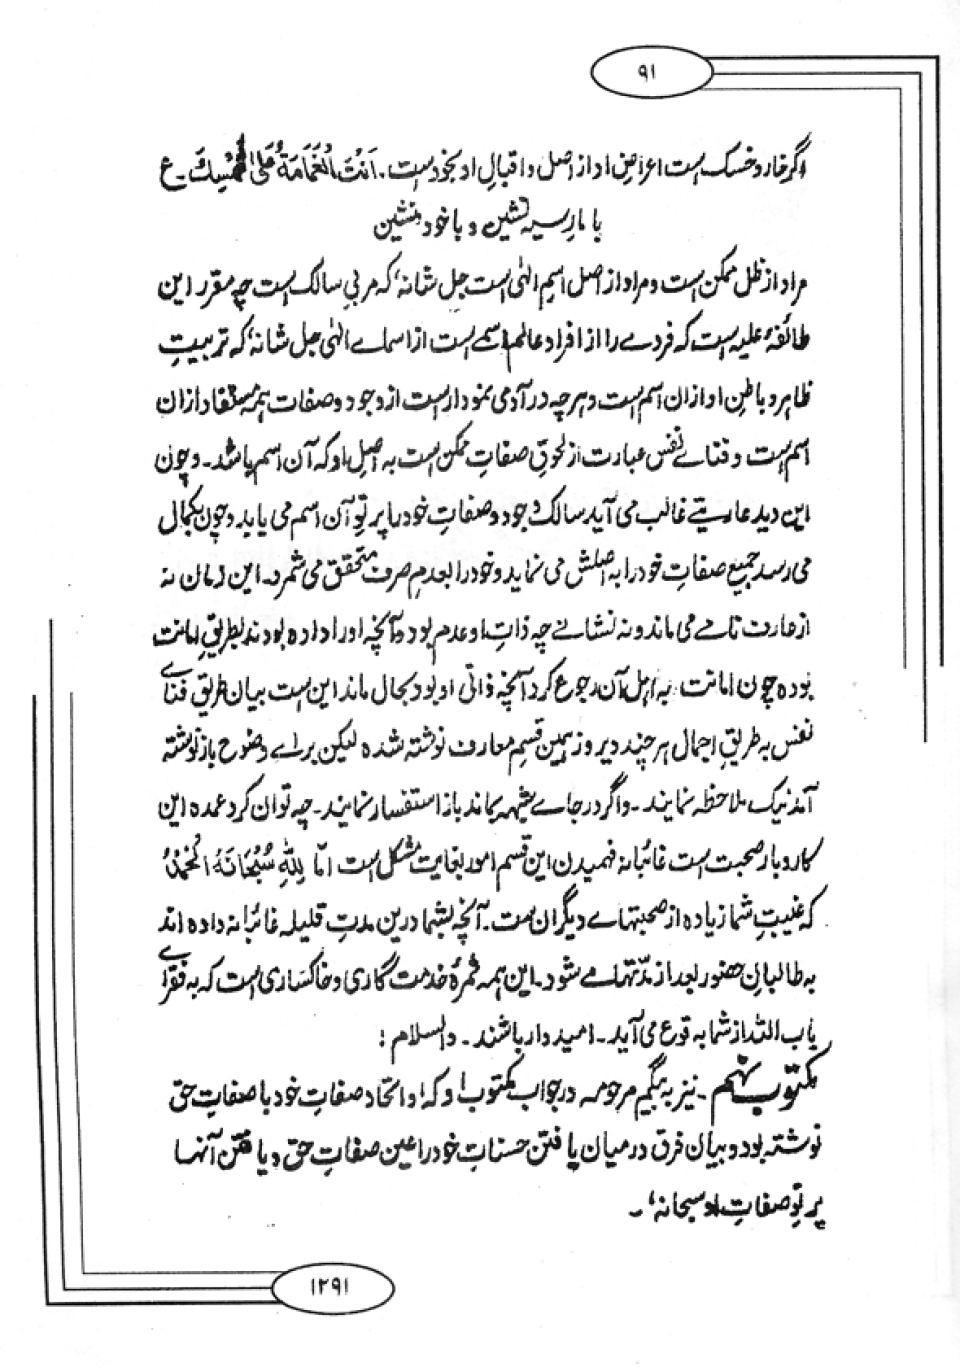 ۹۱
اگر خار و خسک است اعراض او از اصل و اقبالِ او بخود است. اَنْتَ الْغَمَامَةُ عَلٰی شَمْسِكَ۔ ع
با مارِ سیه نشین و با خود منشین
مراد از ظل ممکن است و مراد از اصل اسمِ الٰہی است جل شانہ، کہ مربیِ سالک است چہ مقرر این
طائفۂ علیہ است کہ فردے را از افرادِ عالم اسمے است از اسماے الٰہی جل شانہ، کہ تربیتِ
ظاہر و باطنِ او از ان اسم است و ہرچہ در آدمی نمودار است از وجود و صفات ہمہ مستفاد ازان
اسم است و فناے نفس عبارت از لحوقِ صفاتِ ممکن است بہ اصلِ او کہ آن اسم باشد۔ و چون
این دید عاریتے غالب می آید سالک وجود و صفاتِ خود را پرتوِ آن اسم می یابد و چون بکمال
می رسد جمیع صفاتِ خود را بہ اصلش می نماید و خود را بعدمِ صرف متحقق می شمرد۔ این زمان نہ
از عارف نامے می ماند و نہ نشانے چہ ذاتِ او عدم بودہ آنچہ او را دادہ بودند بطریقِ امانت
بودہ چون امانت بہ اہل آن رجوع کرد آنچہ ذاتی او بود بحال ماند این است بیان طریق فنای
نفس بہ طریقِ اجمال ہر چند دیروز ہمین قسم معارف نوشتہ شدہ لیکن براے وضوح باز نوشتہ
آمد نیک ملاحظہ نمایند۔ و اگر در جاے شبہہ بماند باز استفسار نمایند۔ چہ توان کرد عمدہ این
کاروبار صحبت است غائبانہ فہمیدن این قسم امور بغایت مشکل است امّا لِلّٰهِ سُبْحَانَهُ الْحَمْدُ
کہ غیبتِ شما زیادہ از صحبتہاے دیگران است۔ آنچہ بشما درین مدتِ قلیلہ غائبانہ دادہ اند
بہ طالبانِ حضور بعد از مدّتہا مے شود۔ این ہمہ ثمرۂ خدمت گاری و خاکساری است کہ بہ فقرای
باب اللہ از شما بوقوع می آید۔ امیدوار باشند۔ والسلام :
مکتوب نہم ۔ نیز بہ بیگم مرحومہ در جواب مکتوبِ او کہ او اتحادِ صفاتِ خود با صفاتِ حق
نوشتہ بود و بیان فرق درمیان یافتنِ حسناتِ خود را عین صفاتِ حق و یافتن آنہا
پرتوِ صفاتِ او سبحانہ،۔
۱۲۹۱